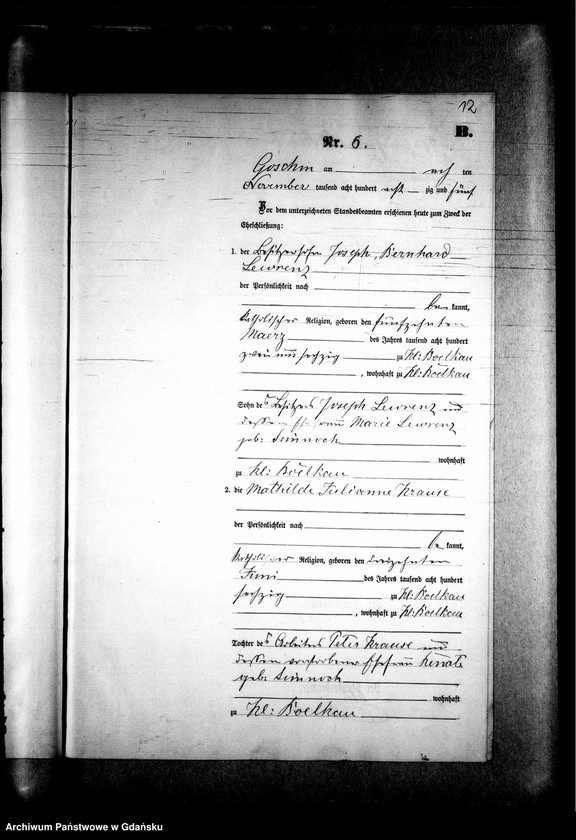 12
B.
Nr. 6.
Goschin am ten
November tausend acht hundert acht zig und fünf
Vor dem unterzeichneten Standesbeamten erschienen heute zum Zweck der
Eheschließung:
1. der Besitzersohn Joseph Bernhard
Lewrenz
der Persönlichkeit nach
be kannt,
katholischer Religion, geboren den fünfzehnten
Maerz des Jahres tausend acht hundert
zwei und sechzig zu Kl: Boelkau
, wohnhaft zu Kl: Boelkau
Sohn des Besitzers Joseph Lewrenz und
dessen Ehefrau Marie Lewrenz
geb:
wohnhaft
zu Kl: Boelkau
2. die Mathilde Julianne Krause
der Persönlichkeit nach
be kannt,
katholischer Religion, geboren den dreizehnten
Juni des Jahres tausend acht hundert
sechzig zu Kl: Boelkau
, wohnhaft zu Kl: Boelkau
Tochter des Arbeiters Peter Krause und
dessen verstorbene Ehefrau Renate
geb:
wohnhaft
zu Kl: Boelkau
Archiwum Państwowe w Gdańsku